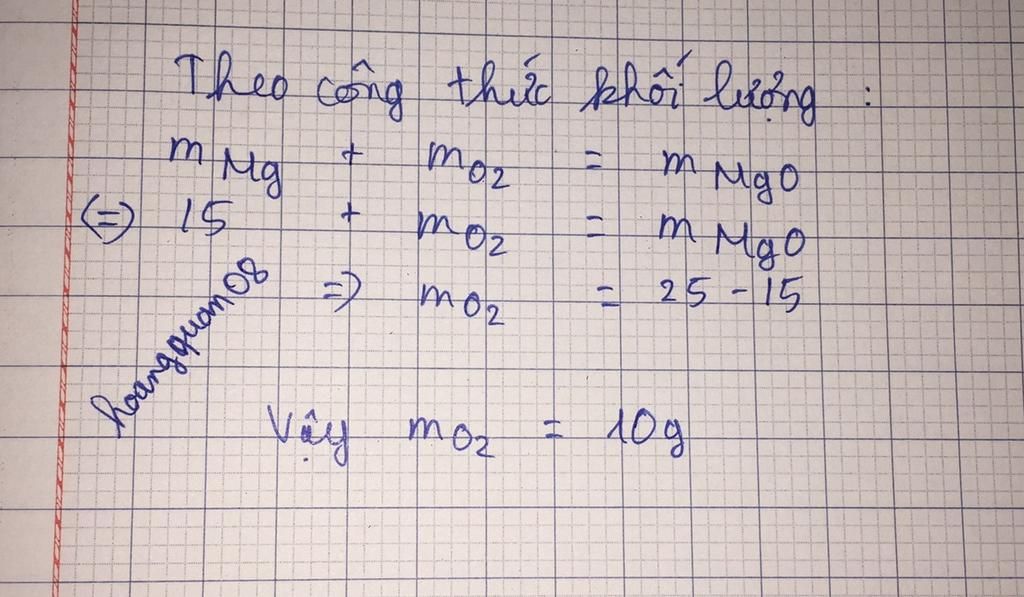 Theo công thức khối lượng :
m Mg + m O2 = m MgO
(=) 15 + m O2 = m MgO
=) m O2 = 25 - 15
hoangquan08
Vậy m O2 = 10g